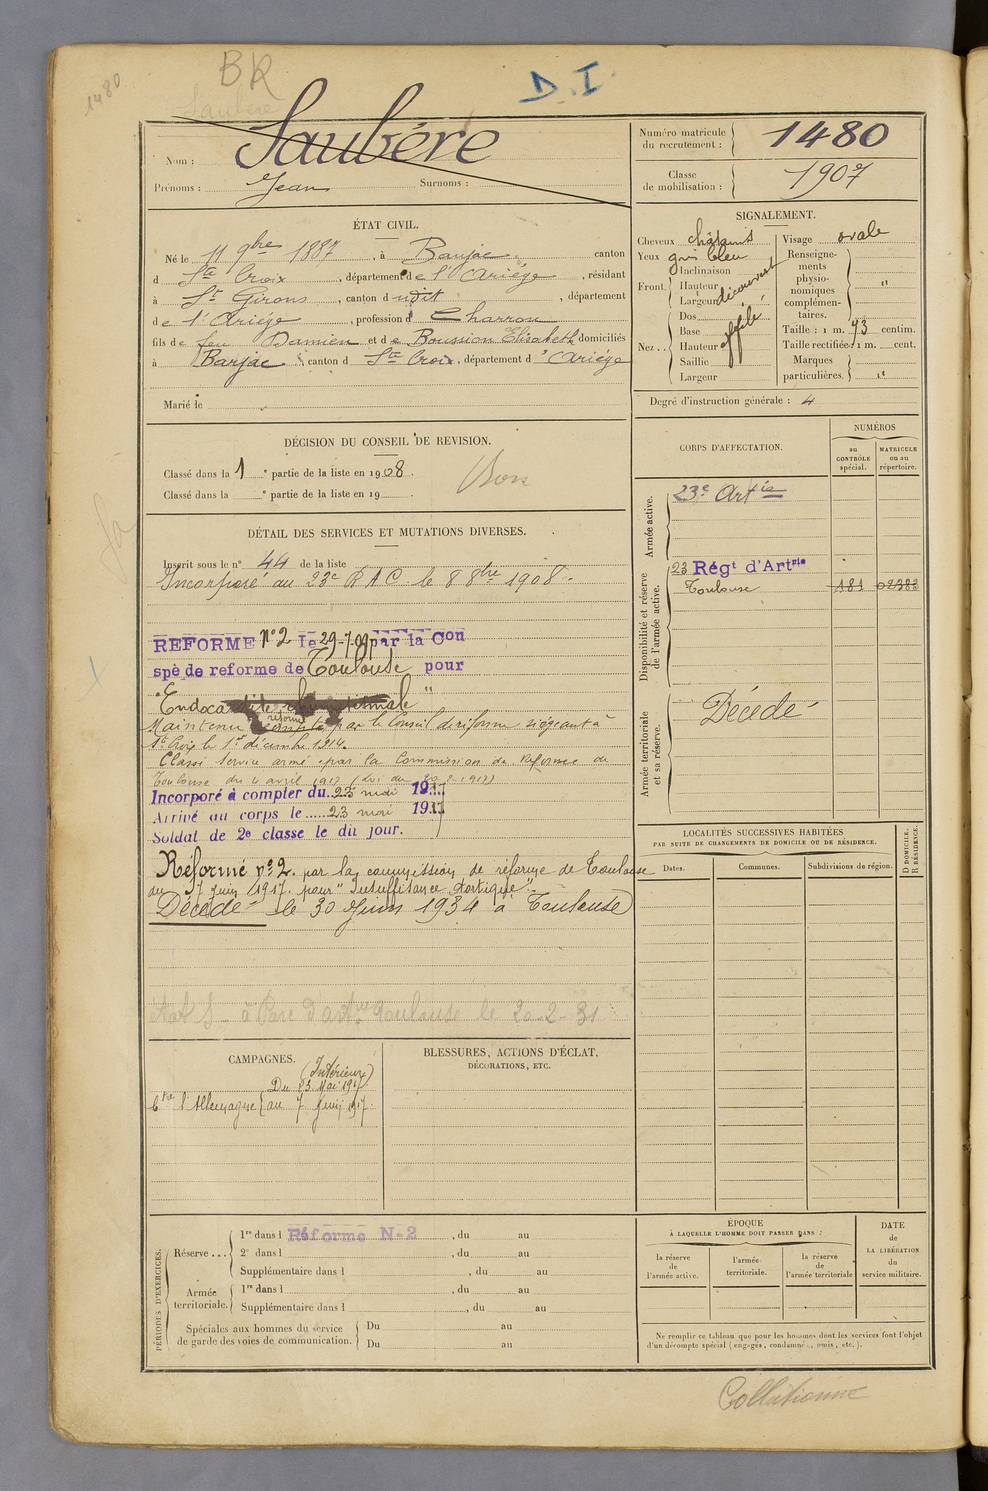 1480
BR
D.I
Saubère
Nom : Saubère
Prénoms : Jean Surnoms :
Numéro matricule du recrutement : 1480
Classe de mobilisation : 1907
ÉTAT CIVIL.
Né le 11 9bre 1887, à Barjac, canton
d Ste Croix, département de l'Ariège, résidant
à St Girons, canton dudit, département
de l'Ariège, profession d Charron
fils de feu Damien et de Boussion Elisabeth domiciliés
à Barjac, canton d Ste Croix, département d 'Ariège
Marié le
SIGNALEMENT.
Cheveux châtains
Yeux gris bleu
Front. Inclinaison
Hauteur
Largeur
découvert
Nez. Dos
Base
Hauteur
Saillie
Largeur
effilé
Visage ovale
Renseignements physionomiques complémentaires. "
Taille : 1 m. 73 centim.
Taille rectifiée : 1 m. cent.
Marques particulières. "
Degré d'instruction générale : 4
DÉCISION DU CONSEIL DE REVISION.
Classé dans la 1e partie de la liste en 1908.
Classé dans la e partie de la liste en 19 .
Bon
CORPS D'AFFECTATION.
NUMÉROS
au CONTRÔLE spécial.
MATRICULE ou au répertoire.
Armée active.
23e Artie
Disponibilité et réserve de l'armée active.
23 Régt d'Artrie
Toulouse 181 02383
Armée territoriale et sa réserve.
Décédé
DÉTAIL DES SERVICES ET MUTATIONS DIVERSES.
Inscrit sous le n° 44 de la liste
Incorporé au 23e RAC le 8 8bre 1908.
REFORME N°2 le 29-7-09 par la Con
spè de reforme de Toulouse pour
"Endocardite "
Maintenu réformé par le Conseil de réforme siégeant à
Ste Croix le 1er décembre 1914.
Classé Service armé par la Commission de Réforme de
Toulouse du 4 avril 1917 (Loi du 20-2-1917)
Incorporé à compter du 23 mai 1917
Arrivé au corps le 23 mai 1917
Soldat de 2e classe le dit jour.
Réformé n°2 par la commission de réforme de Toulouse
du 7 juin 1917 pour "Insuffisance Aortique".
Décédé le 30 Juin 1934 à Toulouse
à Toulouse le 20-2-31
LOCALITÉS SUCCESSIVES HABITÉES
PAR SUITE DE CHANGEMENTS DE DOMICILE OU DE RÉSIDENCE.
Dates. Communes. Subdivisions de région.
D DOMICILE. R RÉSIDENCE.
CAMPAGNES.
(Intérieur)
Du 23 Mai 1917
Ctre l'Allemagne au 7 Juin 1917.
BLESSURES, ACTIONS D'ÉCLAT,
DÉCORATIONS, ETC.
PÉRIODES D'EXERCICES.
Réserve... 1re dans l Réformé N-2, du au
2e dans l , du au
Supplémentaire dans l , du au
Armée territoriale. 1re dans l , du au
Supplémentaire dans l , du au
Spéciales aux hommes du service de garde des voies de communication. Du au
Du au
ÉPOQUE
À LAQUELLE L'HOMME DOIT PASSER DANS :
la réserve de l'armée active.
l'armée territoriale.
la réserve de l'armée territoriale
DATE de LA LIBÉRATION du service militaire.
Ne remplir ce tableau que pour les hommes dont les services font l'objet
d'un décompte spécial (engagés, condamnés, omis, etc.).
Collationné